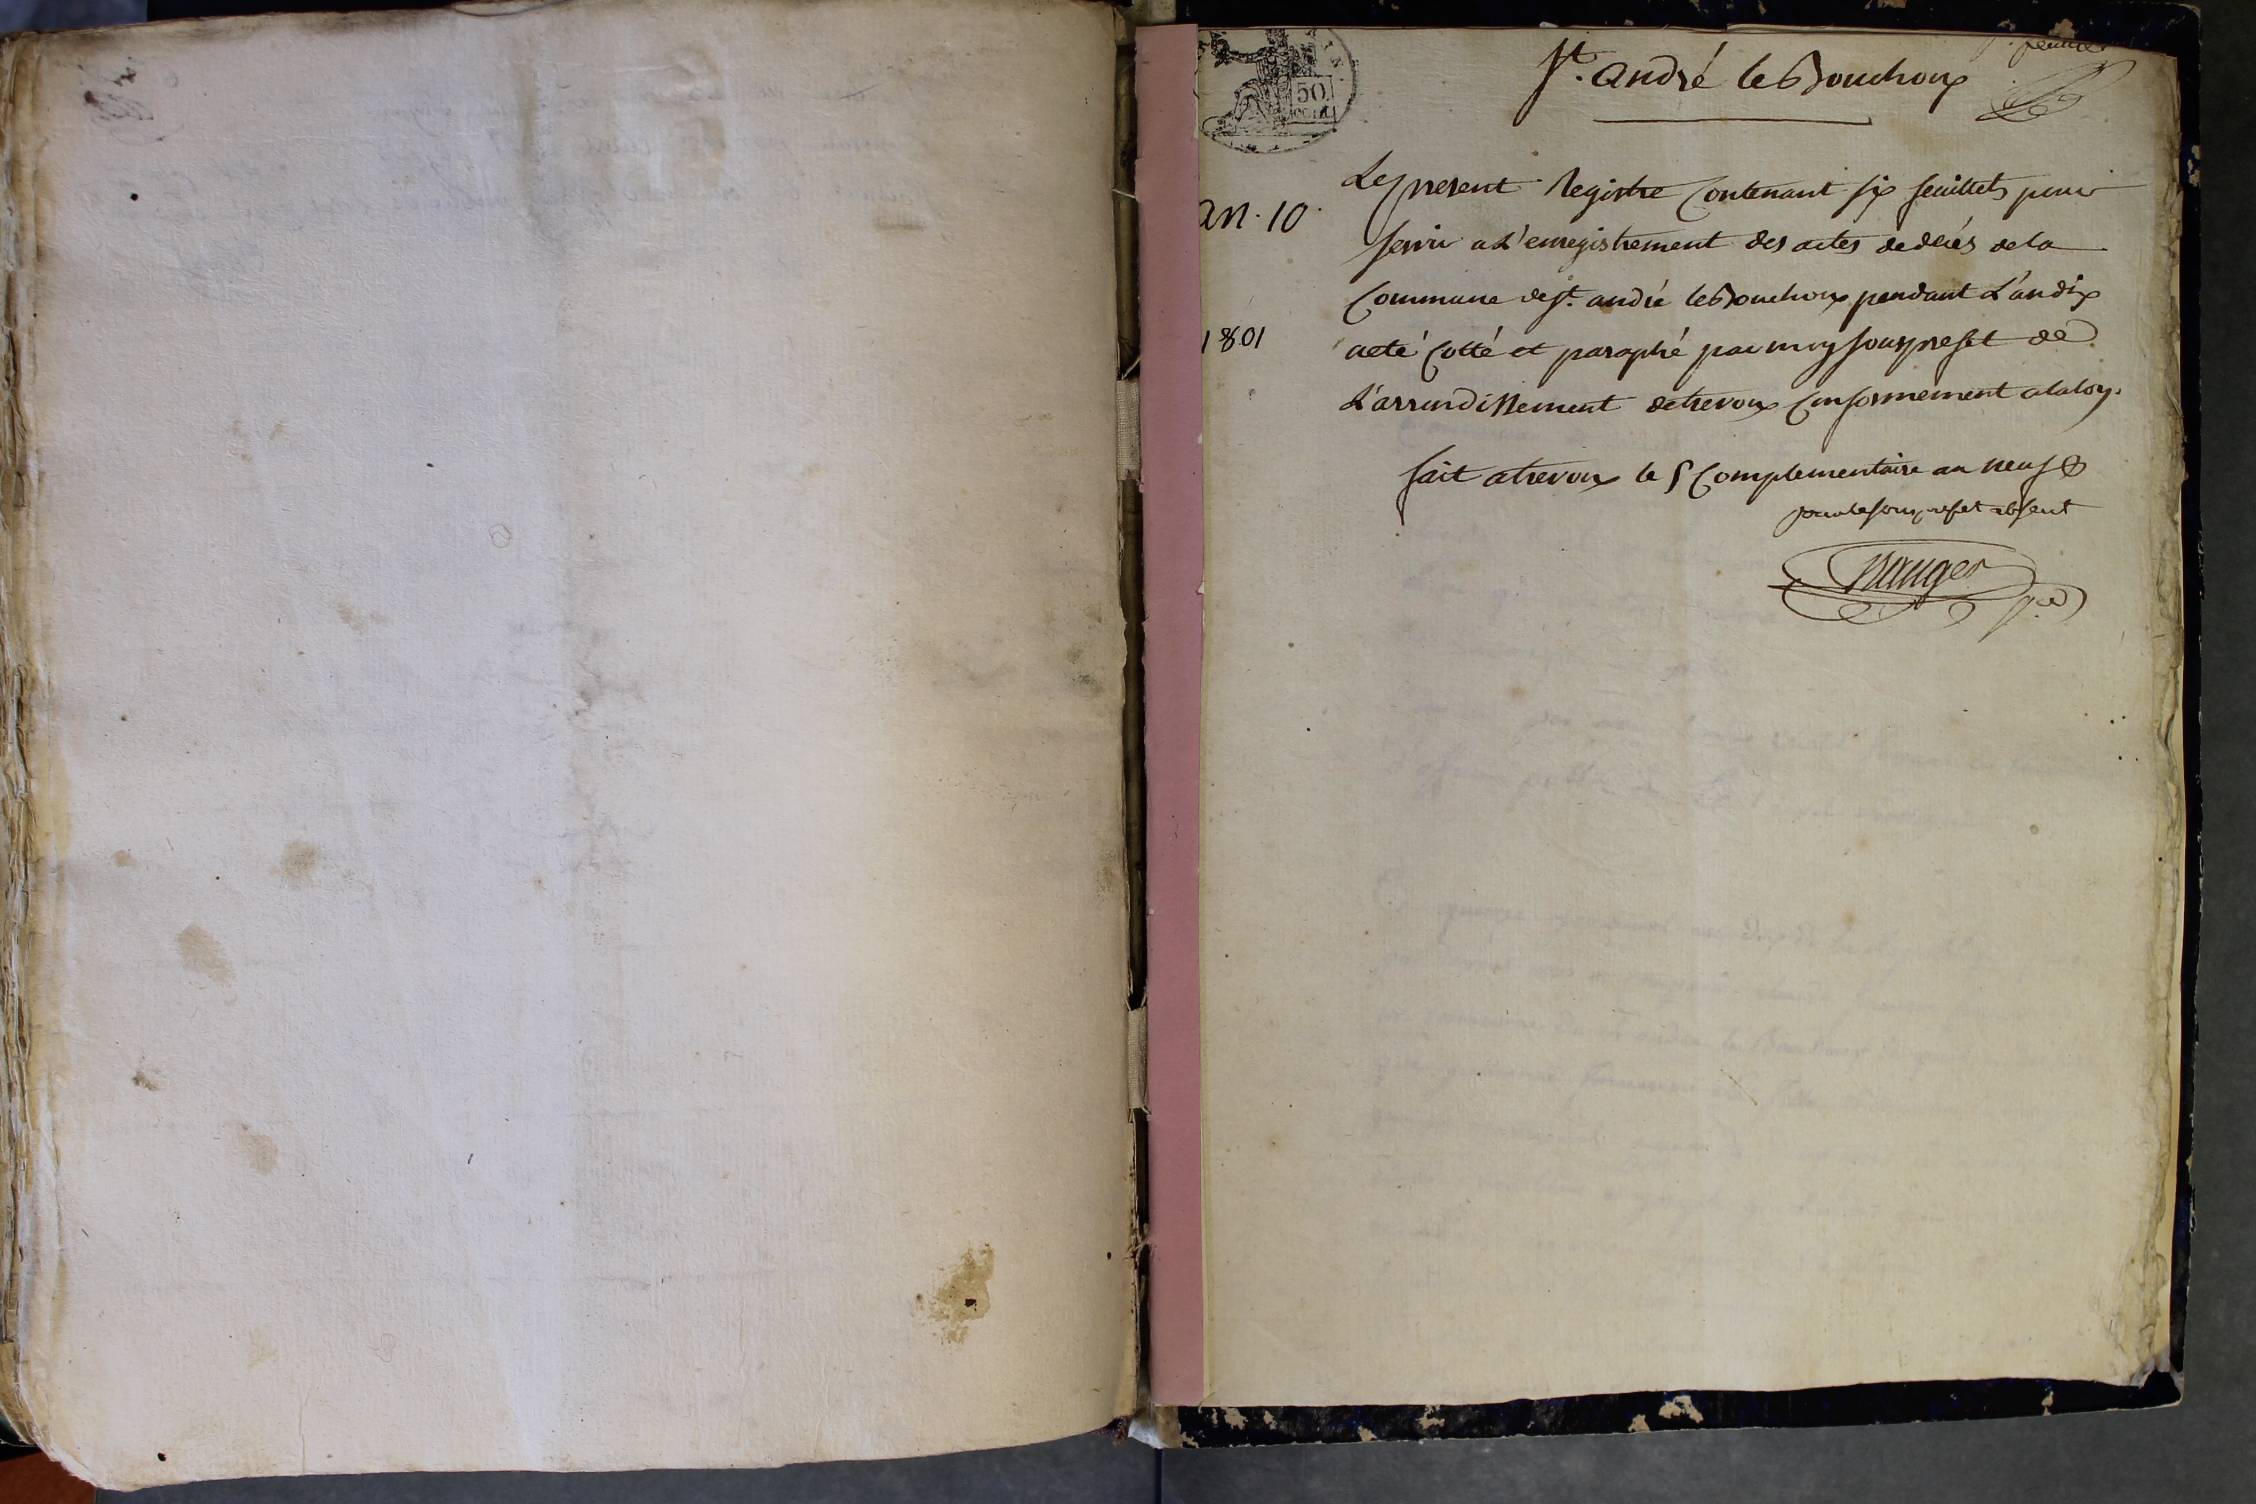 50
cent
St. andré le Bouchoux
Le present Registre Contenant six feuillets pour
an. 10
servir a L'enregistrement des actes de décés de la
Commune de st. andré le Bouchoux pendant L'an dix
1801
a eté Cotté et paraphé par moy sous prefet de
L'arrondissement de trevoux Conformement a la loy.
fait a trevoux le 5 Complementaire an neuf
pour le sous prefet absent